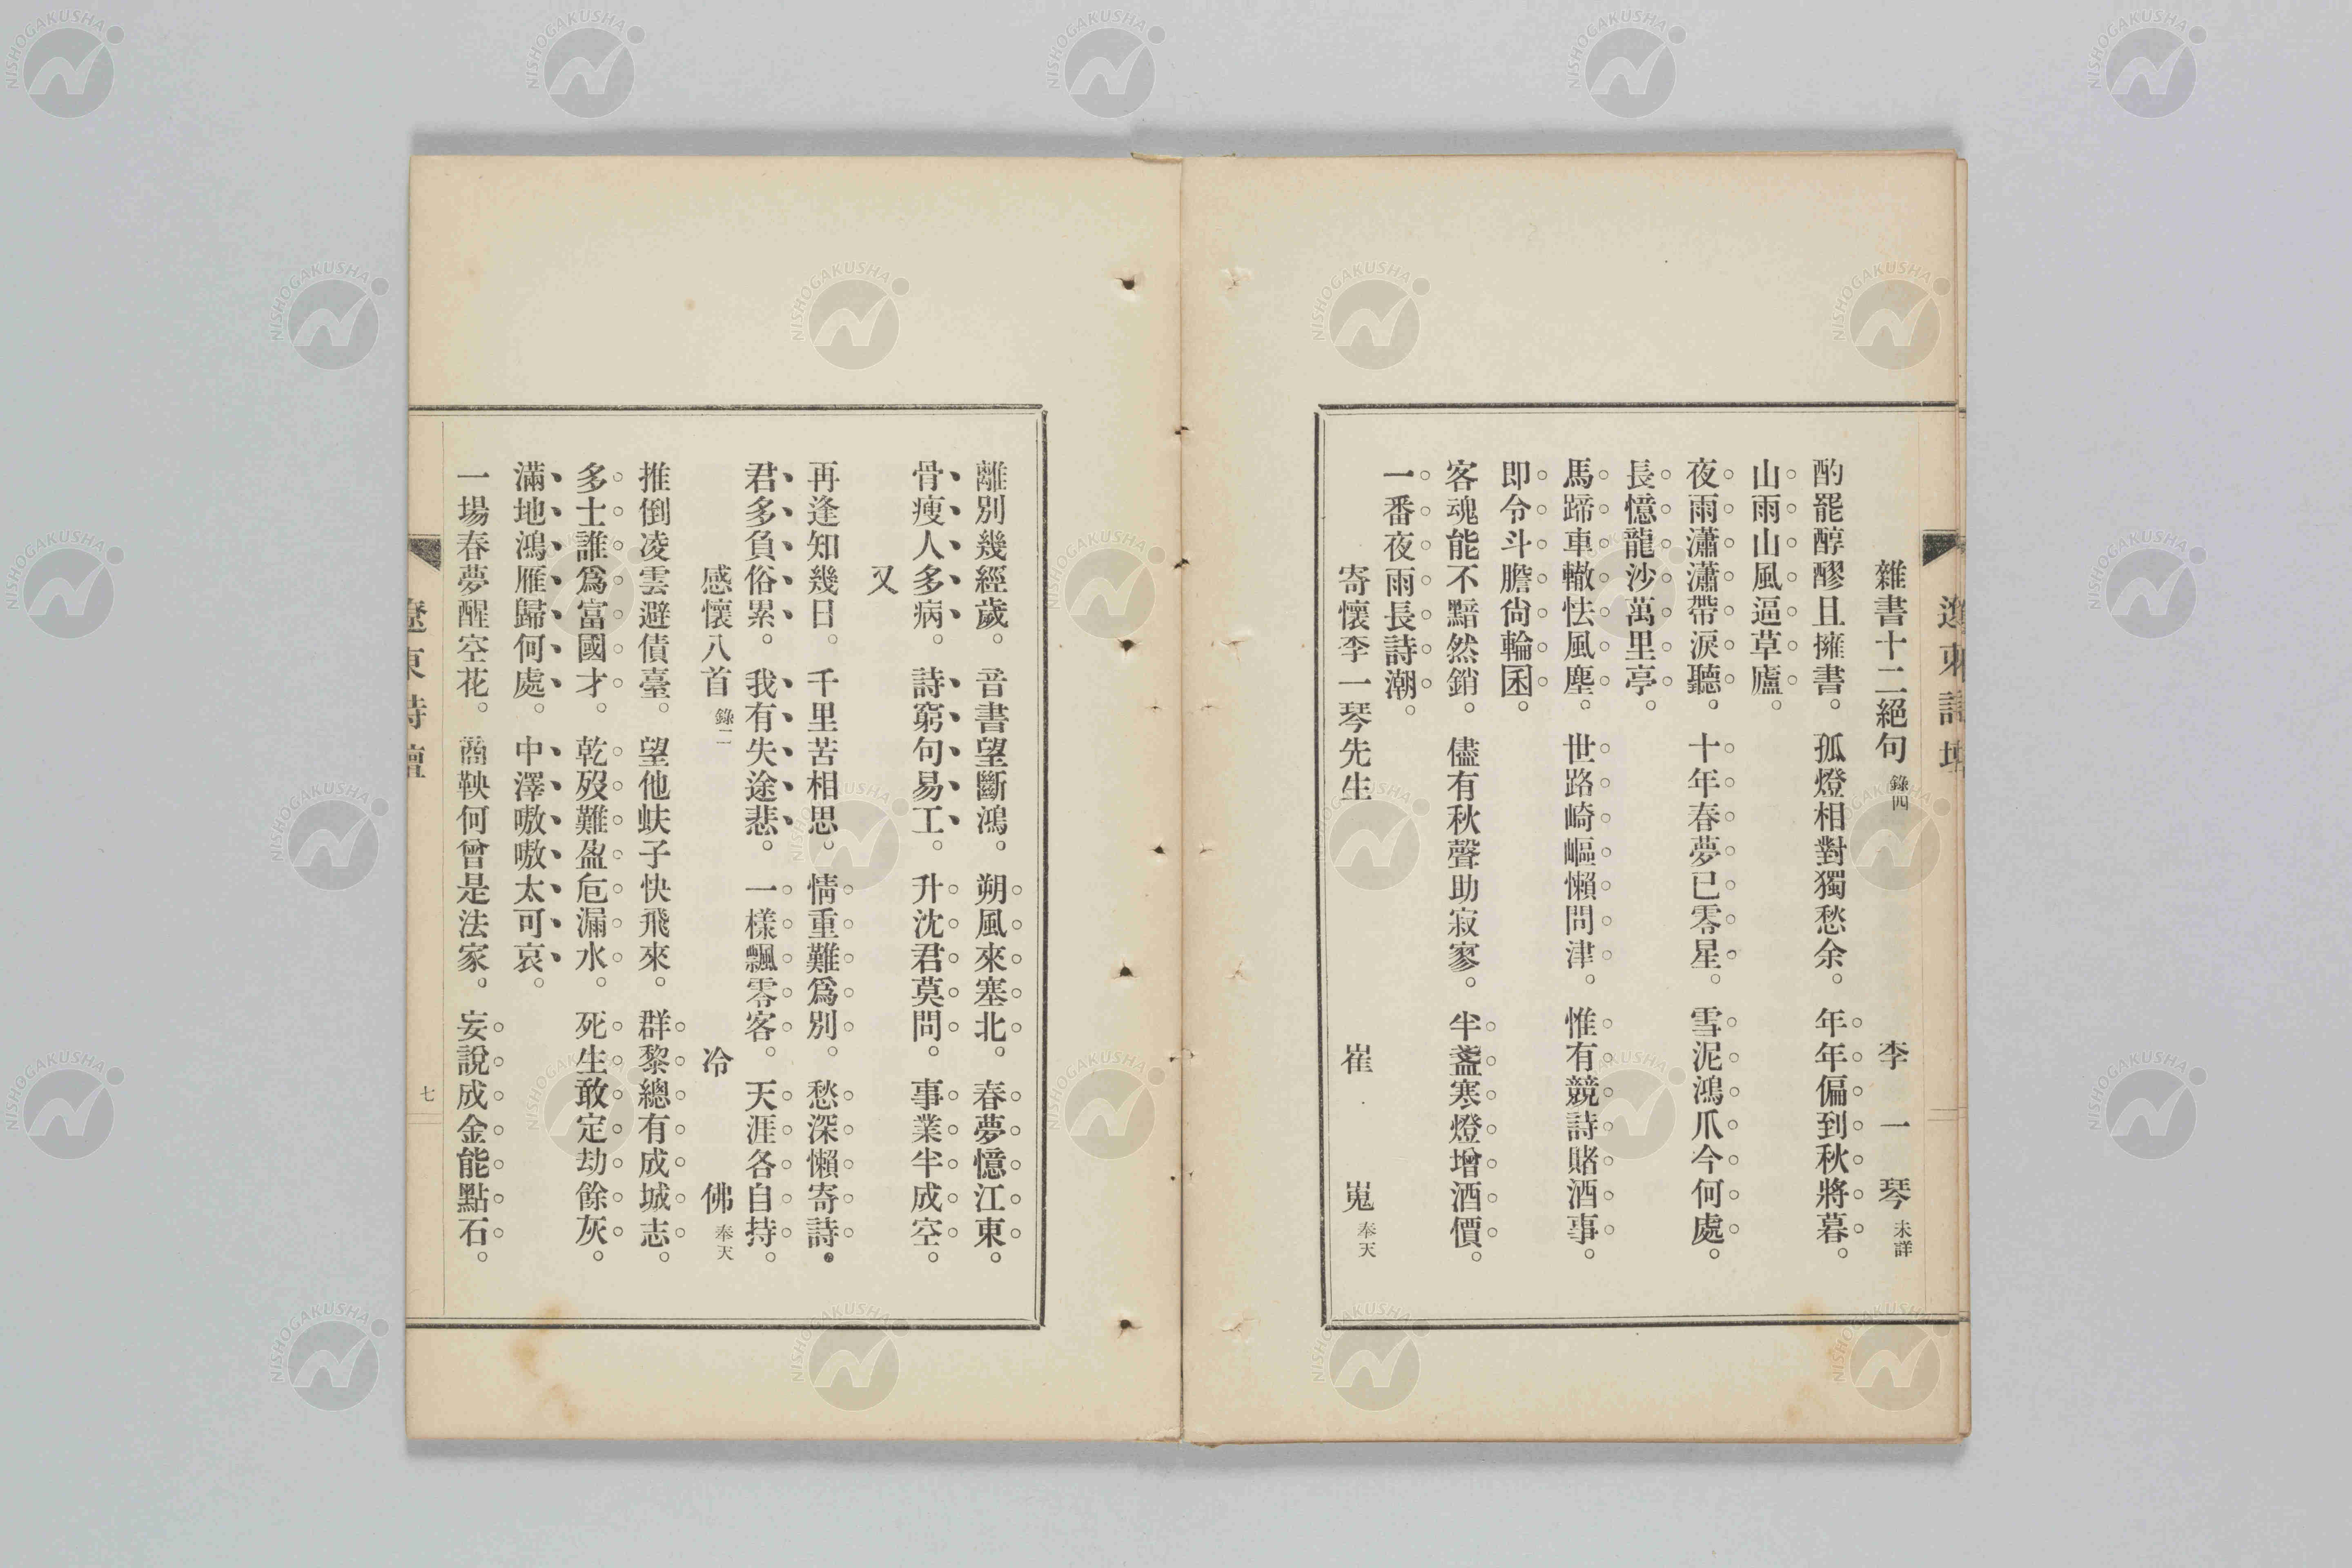 遼東詩壇
雜書十二絕句 錄四 李一琴 未詳
酌罷醇醪且擁書。孤燈相對獨愁余。年年偏到秋將暮。
山雨山風逼草廬。
夜雨瀟瀟帶淚聽。十年春夢已零星。雪泥鴻爪今何處。
長憶龍沙萬里亭。
馬蹄車轍怯風塵。世路崎嶇懶問津。惟有競詩賭酒事。
即令斗膽尙輪囷。
客魂能不黯然銷。儘有秋聲助寂寥。半盞寒燈增酒價。
一番夜雨長詩潮。
寄懷李一琴先生 崔嵬 奉天
離別幾經歲。音書望斷鴻。朔風來塞北。春夢憶江東。
骨瘦人多病。詩窮句易工。升沈君莫問。事業半成空。
又
再逢知幾日。千里苦相思。情重難爲別。愁深懶寄詩。
君多負俗累。我有失途悲。一樣飄零客。天涯各自持。
感懷八首 錄二 冷佛 奉天
推倒凌雲避債臺。望他蚨子快飛來。群黎總有成城志。
多士誰爲富國才。乾歿難盈卮漏水。死生敢定劫餘灰。
滿地鴻雁歸何處。中澤嗷嗷太可哀。
一場春夢醒空花。商鞅何曾是法家。妄說成金能點石。
遼東詩壇
七
NISHOGAKUSHA